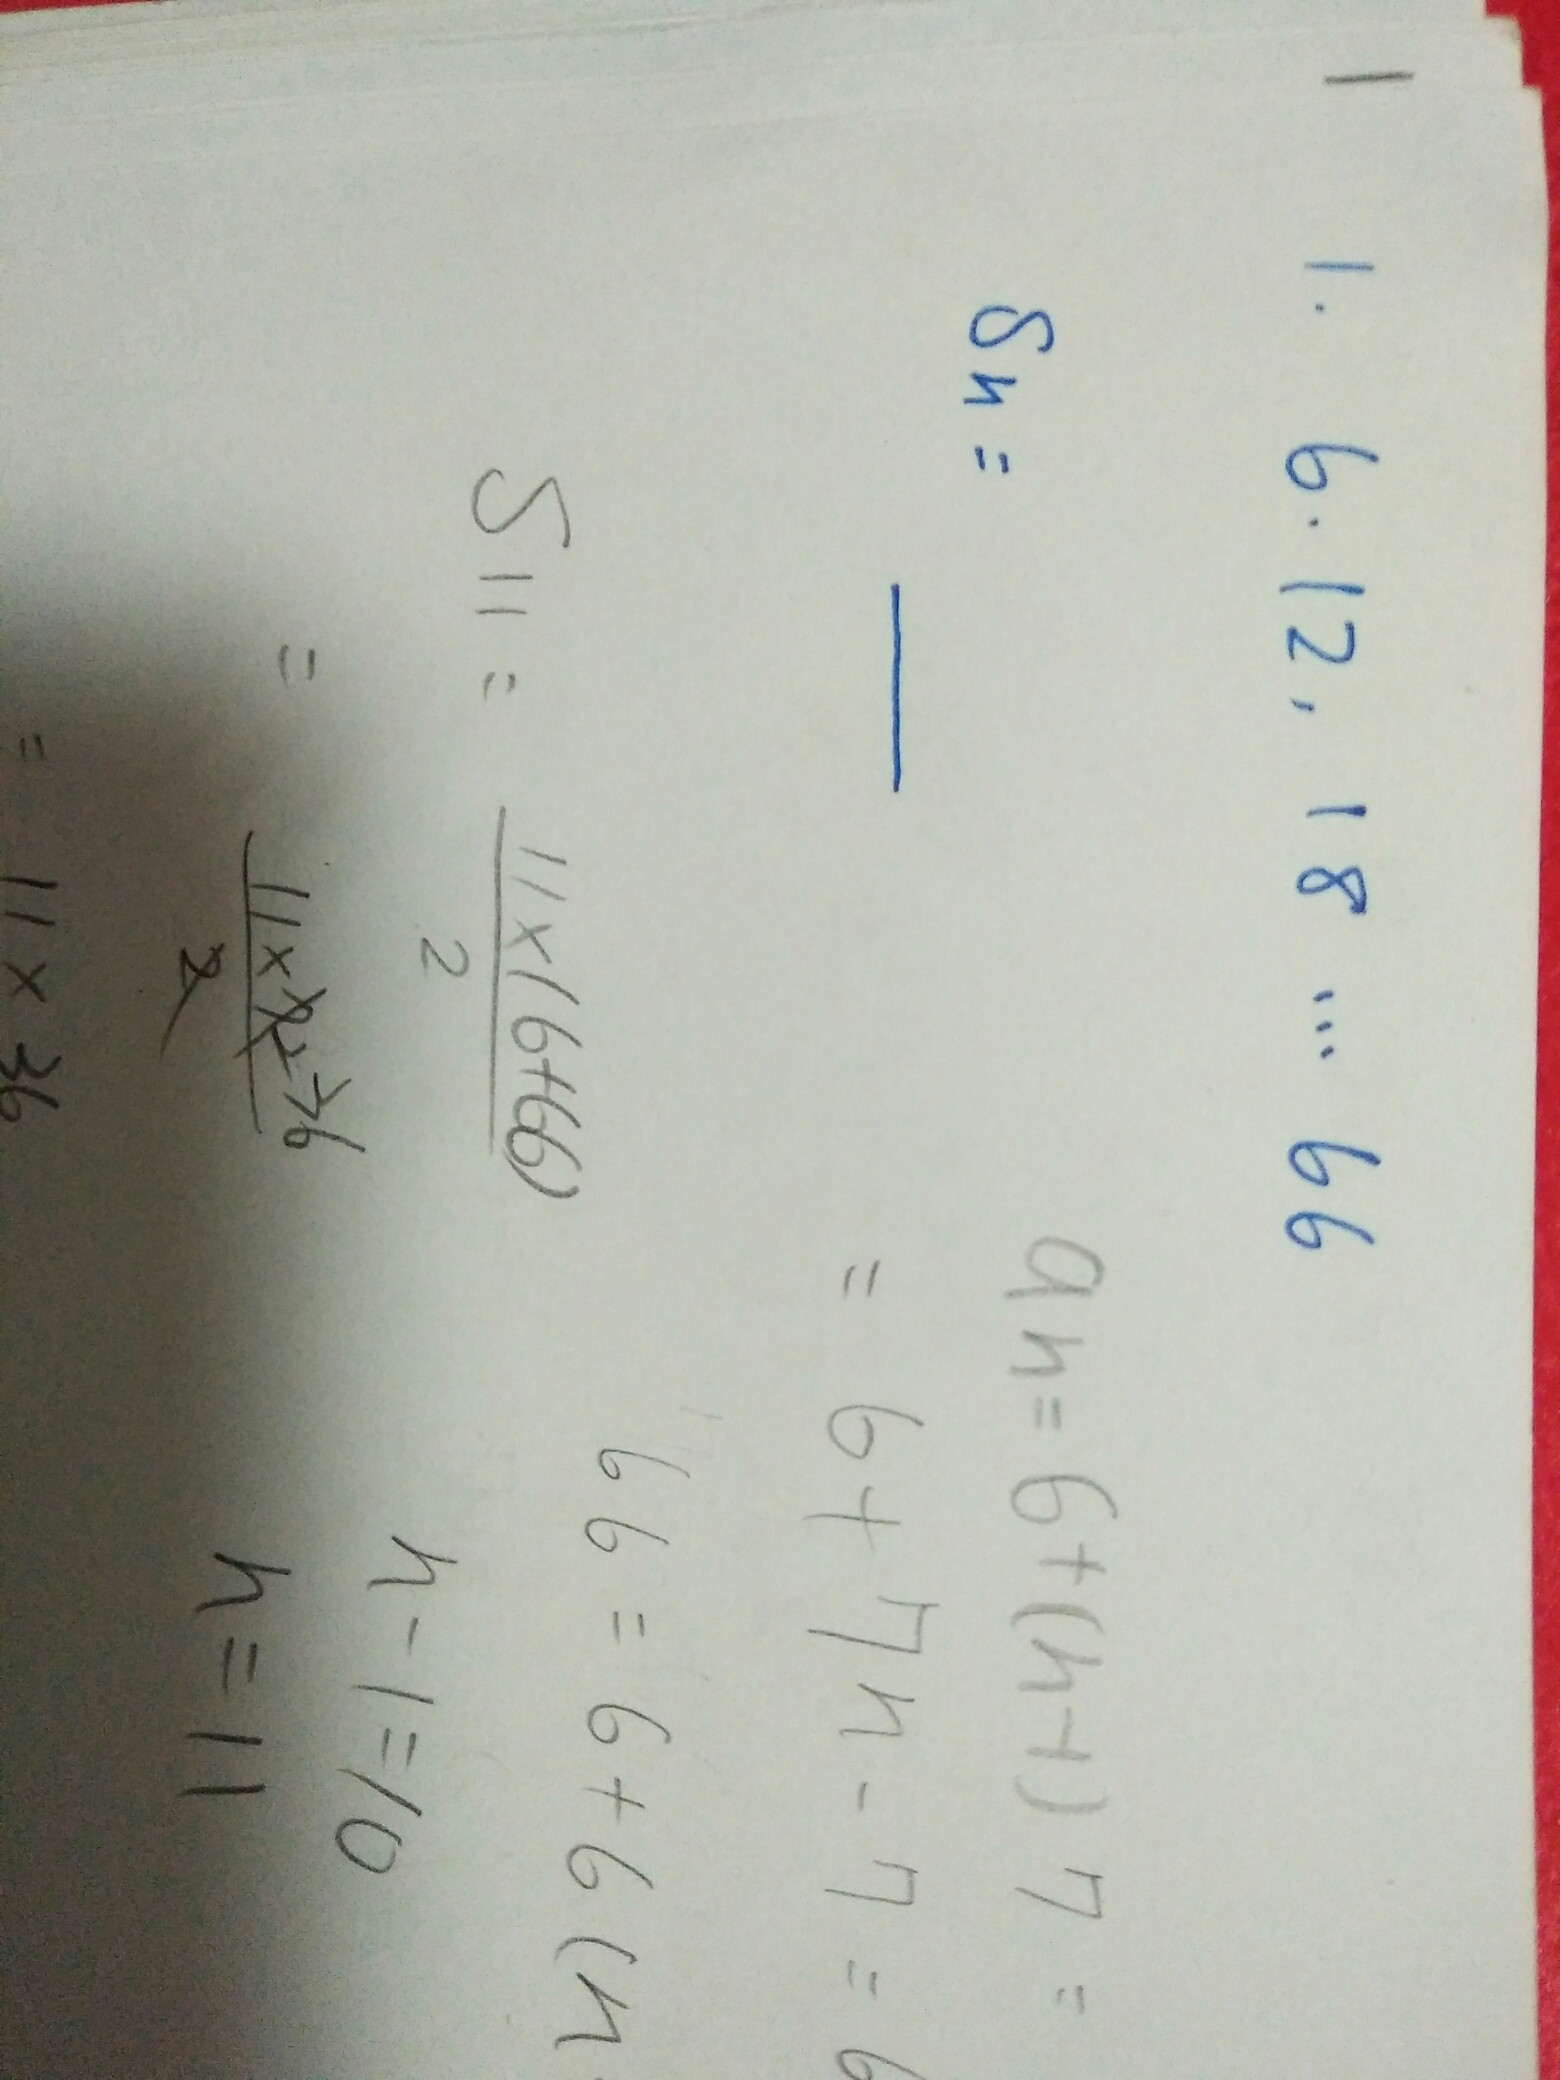 1
1. 6. 12, 18 ... 66
Sn =
an = 6+(n-1) 7 =
= 6+7n-7=6
66 = 6+6(n-
n-1=10
n=11
S11 = 11×(6+66)
2
= 11×
36
2
= 11×36